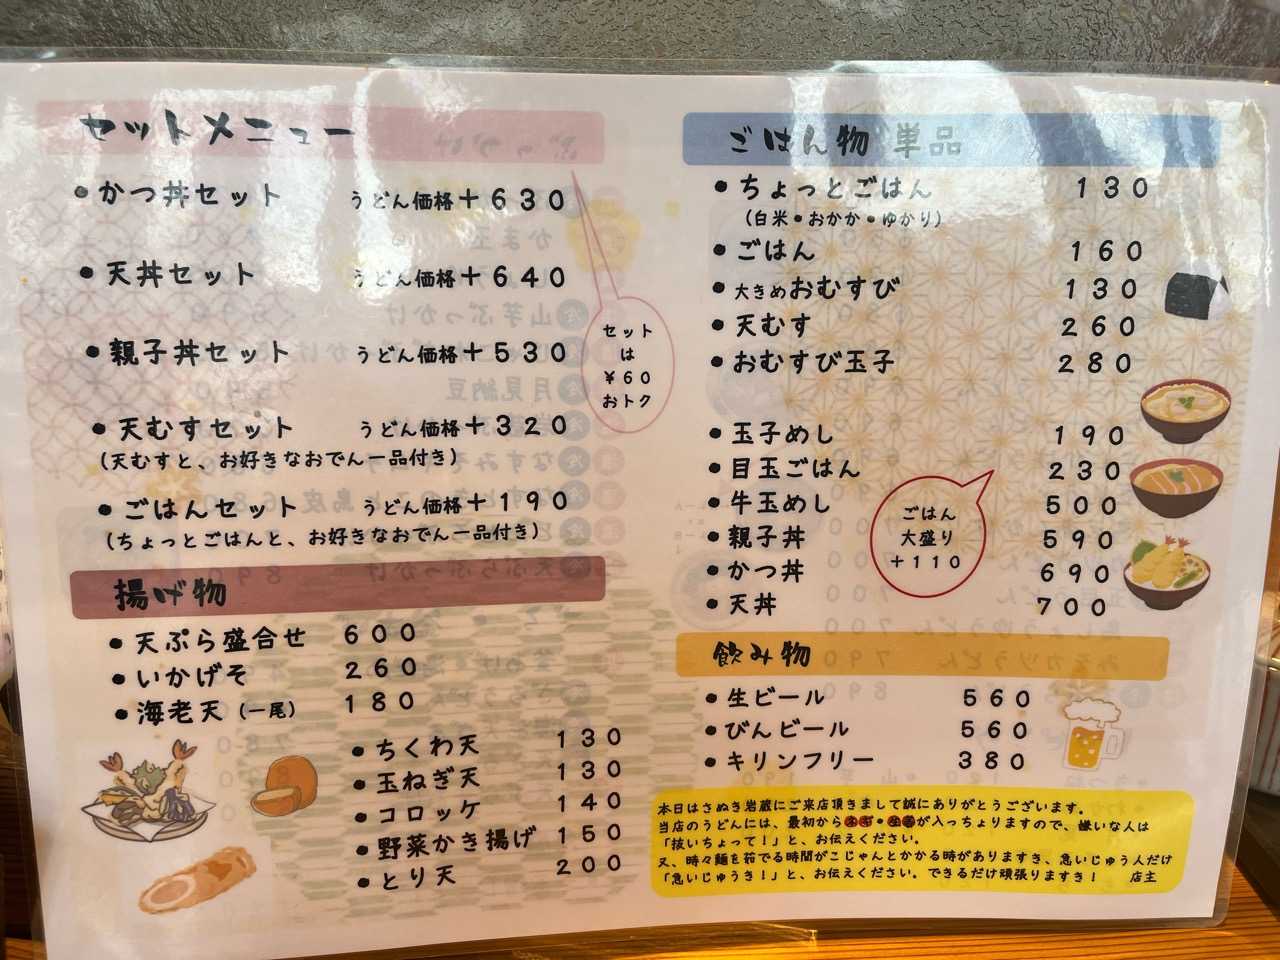 セットメニュー
●かつ丼セット うどん価格＋６３０
●天丼セット うどん価格＋６４０
●親子丼セット うどん価格＋５３０
●天むすセット うどん価格＋３２０
（天むすと、お好きなおでん一品付き）
●ごはんセット うどん価格＋１９０
（ちょっとごはんと、お好きなおでん一品付き）
セット
は
￥６０
おトク
揚げ物
●天ぷら盛合せ ６００
●いかげそ ２６０
●海老天（一尾） １８０
●ちくわ天 １３０
●玉ねぎ天 １３０
●コロッケ １４０
●野菜かき揚げ １５０
●とり天 ２００
ごはん物 単品
●ちょっとごはん １３０
（白米●おかか●ゆかり）
●ごはん １６０
●大きめおむすび １３０
●天むす ２６０
●おむすび玉子 ２８０
●玉子めし １９０
●目玉ごはん ２３０
●牛玉めし ５００
●親子丼 ５９０
●かつ丼 ６９０
●天丼 ７００
ごはん
大盛り
＋１１０
飲み物
●生ビール ５６０
●びんビール ５６０
●キリンフリー ３８０
本日はさぬき岩蔵にご来店頂きまして誠にありがとうございます。
当店のうどんには、最初からネギ●生姜が入っちょりますので、嫌いな人は
「抜いちょって！」と、お伝えください。
又、時々麺を茹でる時間がこじゃんとかかる時がありますき、急いじゅう人だけ
「急いじゅうき！」と、お伝えください。できるだけ頑張りますき！ 店主